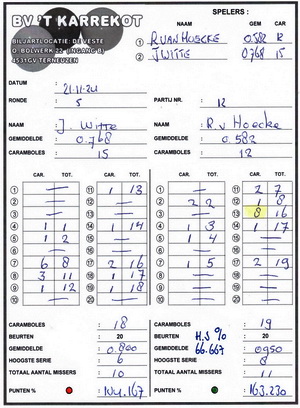 BV.'T KARREKOT
SPELERS :
NAAM GEM CAR
BILJARTLOCATIE: DE VESTE
1 R VAN HOECKE 0.582 12
2 J WITTE 0.768 15
4531GV TERNEUZEN
DATUM : 21-11-24
RONDE : 5 PARTIJ NR. : 12
NAAM : J. Witte NAAM : R v Hoecke
GEMIDDELDE : 0.768 GEMIDDELDE : 0.582
CARAMBOLES : 15 CARAMBOLES : 12
CAR. TOT. CAR. TOT. CAR. TOT. CAR. TOT.
1 — 11 1 13 1 — 11 2 7
2 — 12 — 2 2 2 12 1 8
3 — 13 — 3 — 13 8 16
4 1 1 14 1 14 4 1 3 14 1 17
5 1 2 15 — 5 1 4 15 —
6 — 16 — 6 — 16 —
7 6 8 17 2 16 7 1 5 17 2 19
8 3 11 18 1 17 8 — 18 —
9 1 12 19 1 18 9 — 19 —
10 — 20 — 10 — 20 —
CARAMBOLES : 18 CARAMBOLES : 19
BEURTEN : 20 H.S % BEURTEN : 20
GEMIDDELDE : 0.900 66.667 GEMIDDELDE : 0.950
HOOGSTE SERIE : 6 HOOGSTE SERIE : 8
TOTAAL AANTAL MISSERS : 10 TOTAAL AANTAL MISSERS : 11
PUNTEN % : 104.167 PUNTEN % : 163.230